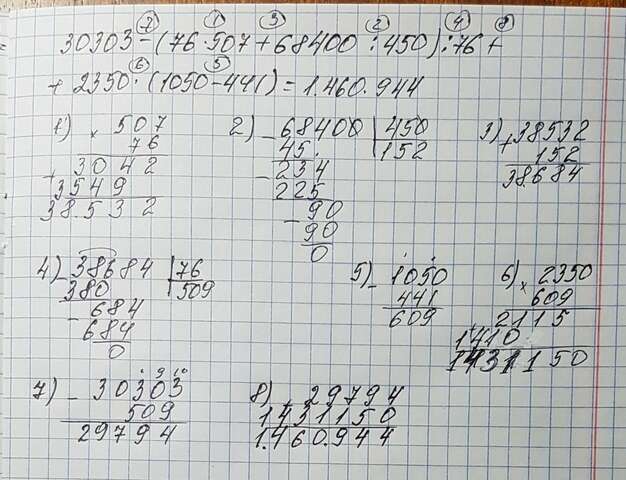 ⑦ ① ③ ② ④ ⑧
30303-(76·507+68400:450):76+
⑥ ⑤
+2350·(1050-441)=1.460.944
1) × 507 2) - 68400 | 450 3) + 38532
76 45 152 152
+ 3042 - 234 38.684
3549 225
38.532 - 90
90
0
4) - 38684 | 76 5) - 1050 6) × 2350
380 509 441 609
- 684 609 + 2115
684 1410
0 1431150
9 10
7) - 30303 8) + 29794
509 1431150
29794 1.460.944